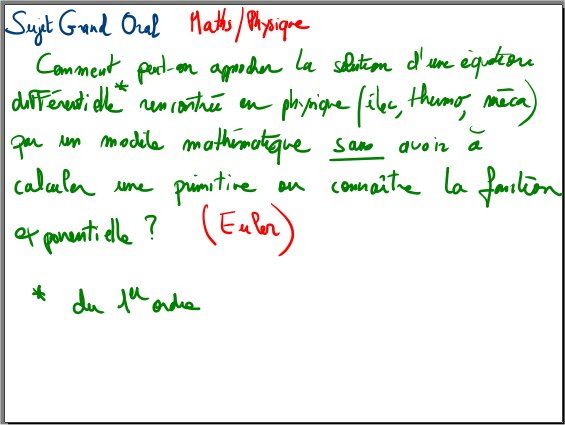 Sujet Grand Oral Maths/Physique
Comment peut-on approcher la solution d'une équation
différentielle* rencontrée en physique (élec, thermo, méca)
par un modèle mathématique sans avoir à
calculer une primitive ou connaître la fonction
exponentielle ? (Euler)
* du 1er ordre